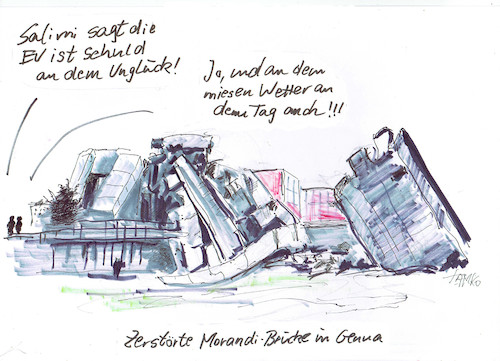 Salimi sagt die
EU ist Schuld
an dem Unglück!
Ja, und an dem
miesen Wetter an
dem Tag auch!!!
Zerstörte Morandi-Brücke in Genua